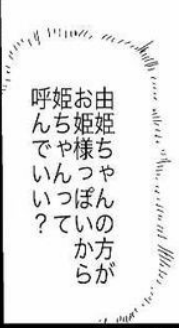 由姫ちゃんの方が
お姫様っぽいから
姫ちゃんって
呼んでいい？